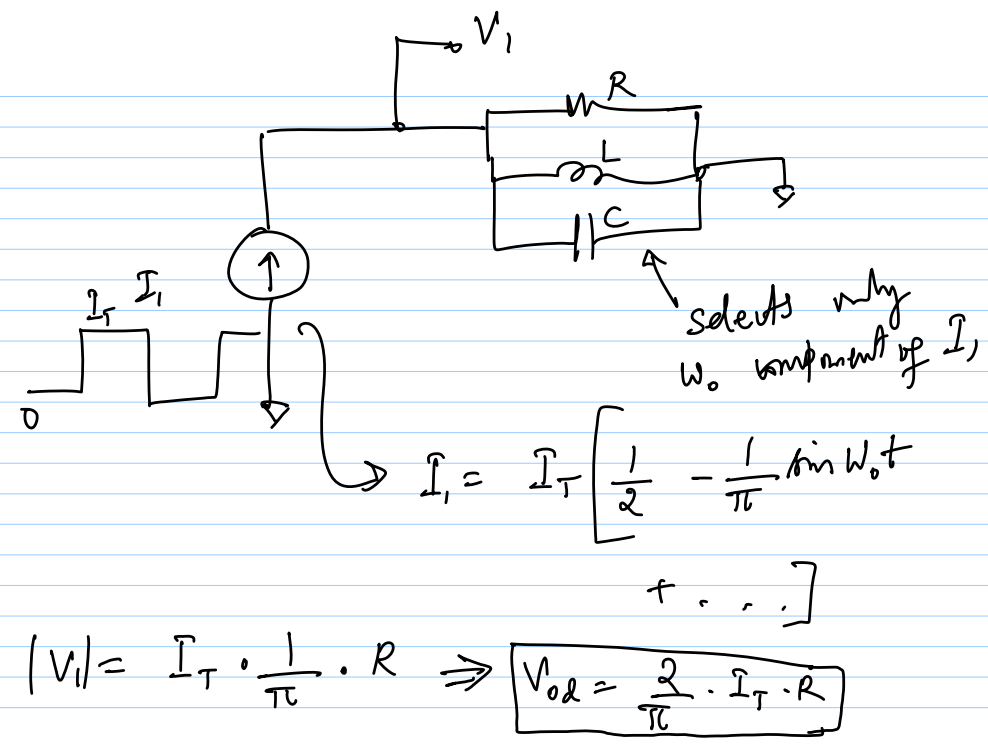 V₁
R
L
C
I_T I₁
0
selects only
ω₀ component of I₁
I₁ = I_T [ 1/2 - 1/π sin ω₀t
+ . . . ]
|V₁| = I_T · 1/π · R ⇒ V_od = 2/π · I_T · R